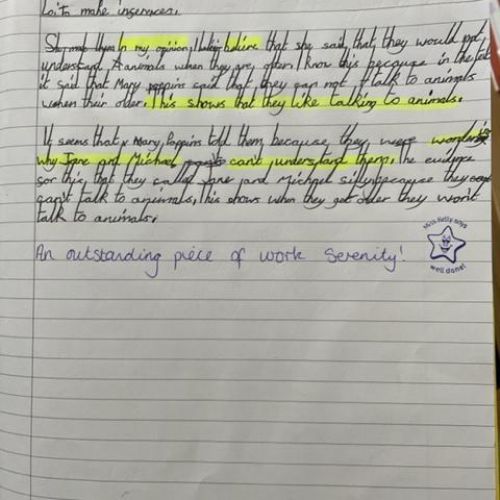 L.o To make inferences.
in my opinion, I believe that she said, that, they would not
understand animals when they are older. I know this because in the text
it said that Mary poppins said that, they can not talk to animals
when their older. This shows that they like talking to animals.
It seems that Mary Poppins told them because they were
why Jane and Michael can't understand them. The evidence
for this, that they called Jane and Michael silly because they
can't talk to animals, This shows when they get older they won't
talk to animals.
An outstanding piece of work Serenity!
Miss Kelly says
well done!